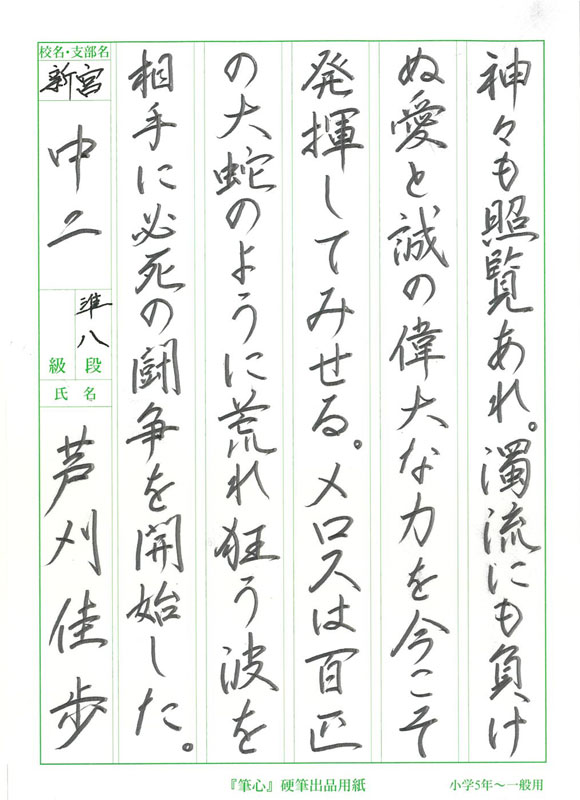 神々も照覧あれ。濁流にも負け
ぬ愛と誠の偉大な力を今こそ
発揮してみせる。メロスは百匹
の大蛇のように荒れ狂う波を
相手に必死の闘争を開始した。
校名・支部名
新宮
中二
準八
段
級
氏名
芦刈佳歩
『筆心』硬筆出品用紙
小学5年～一般用